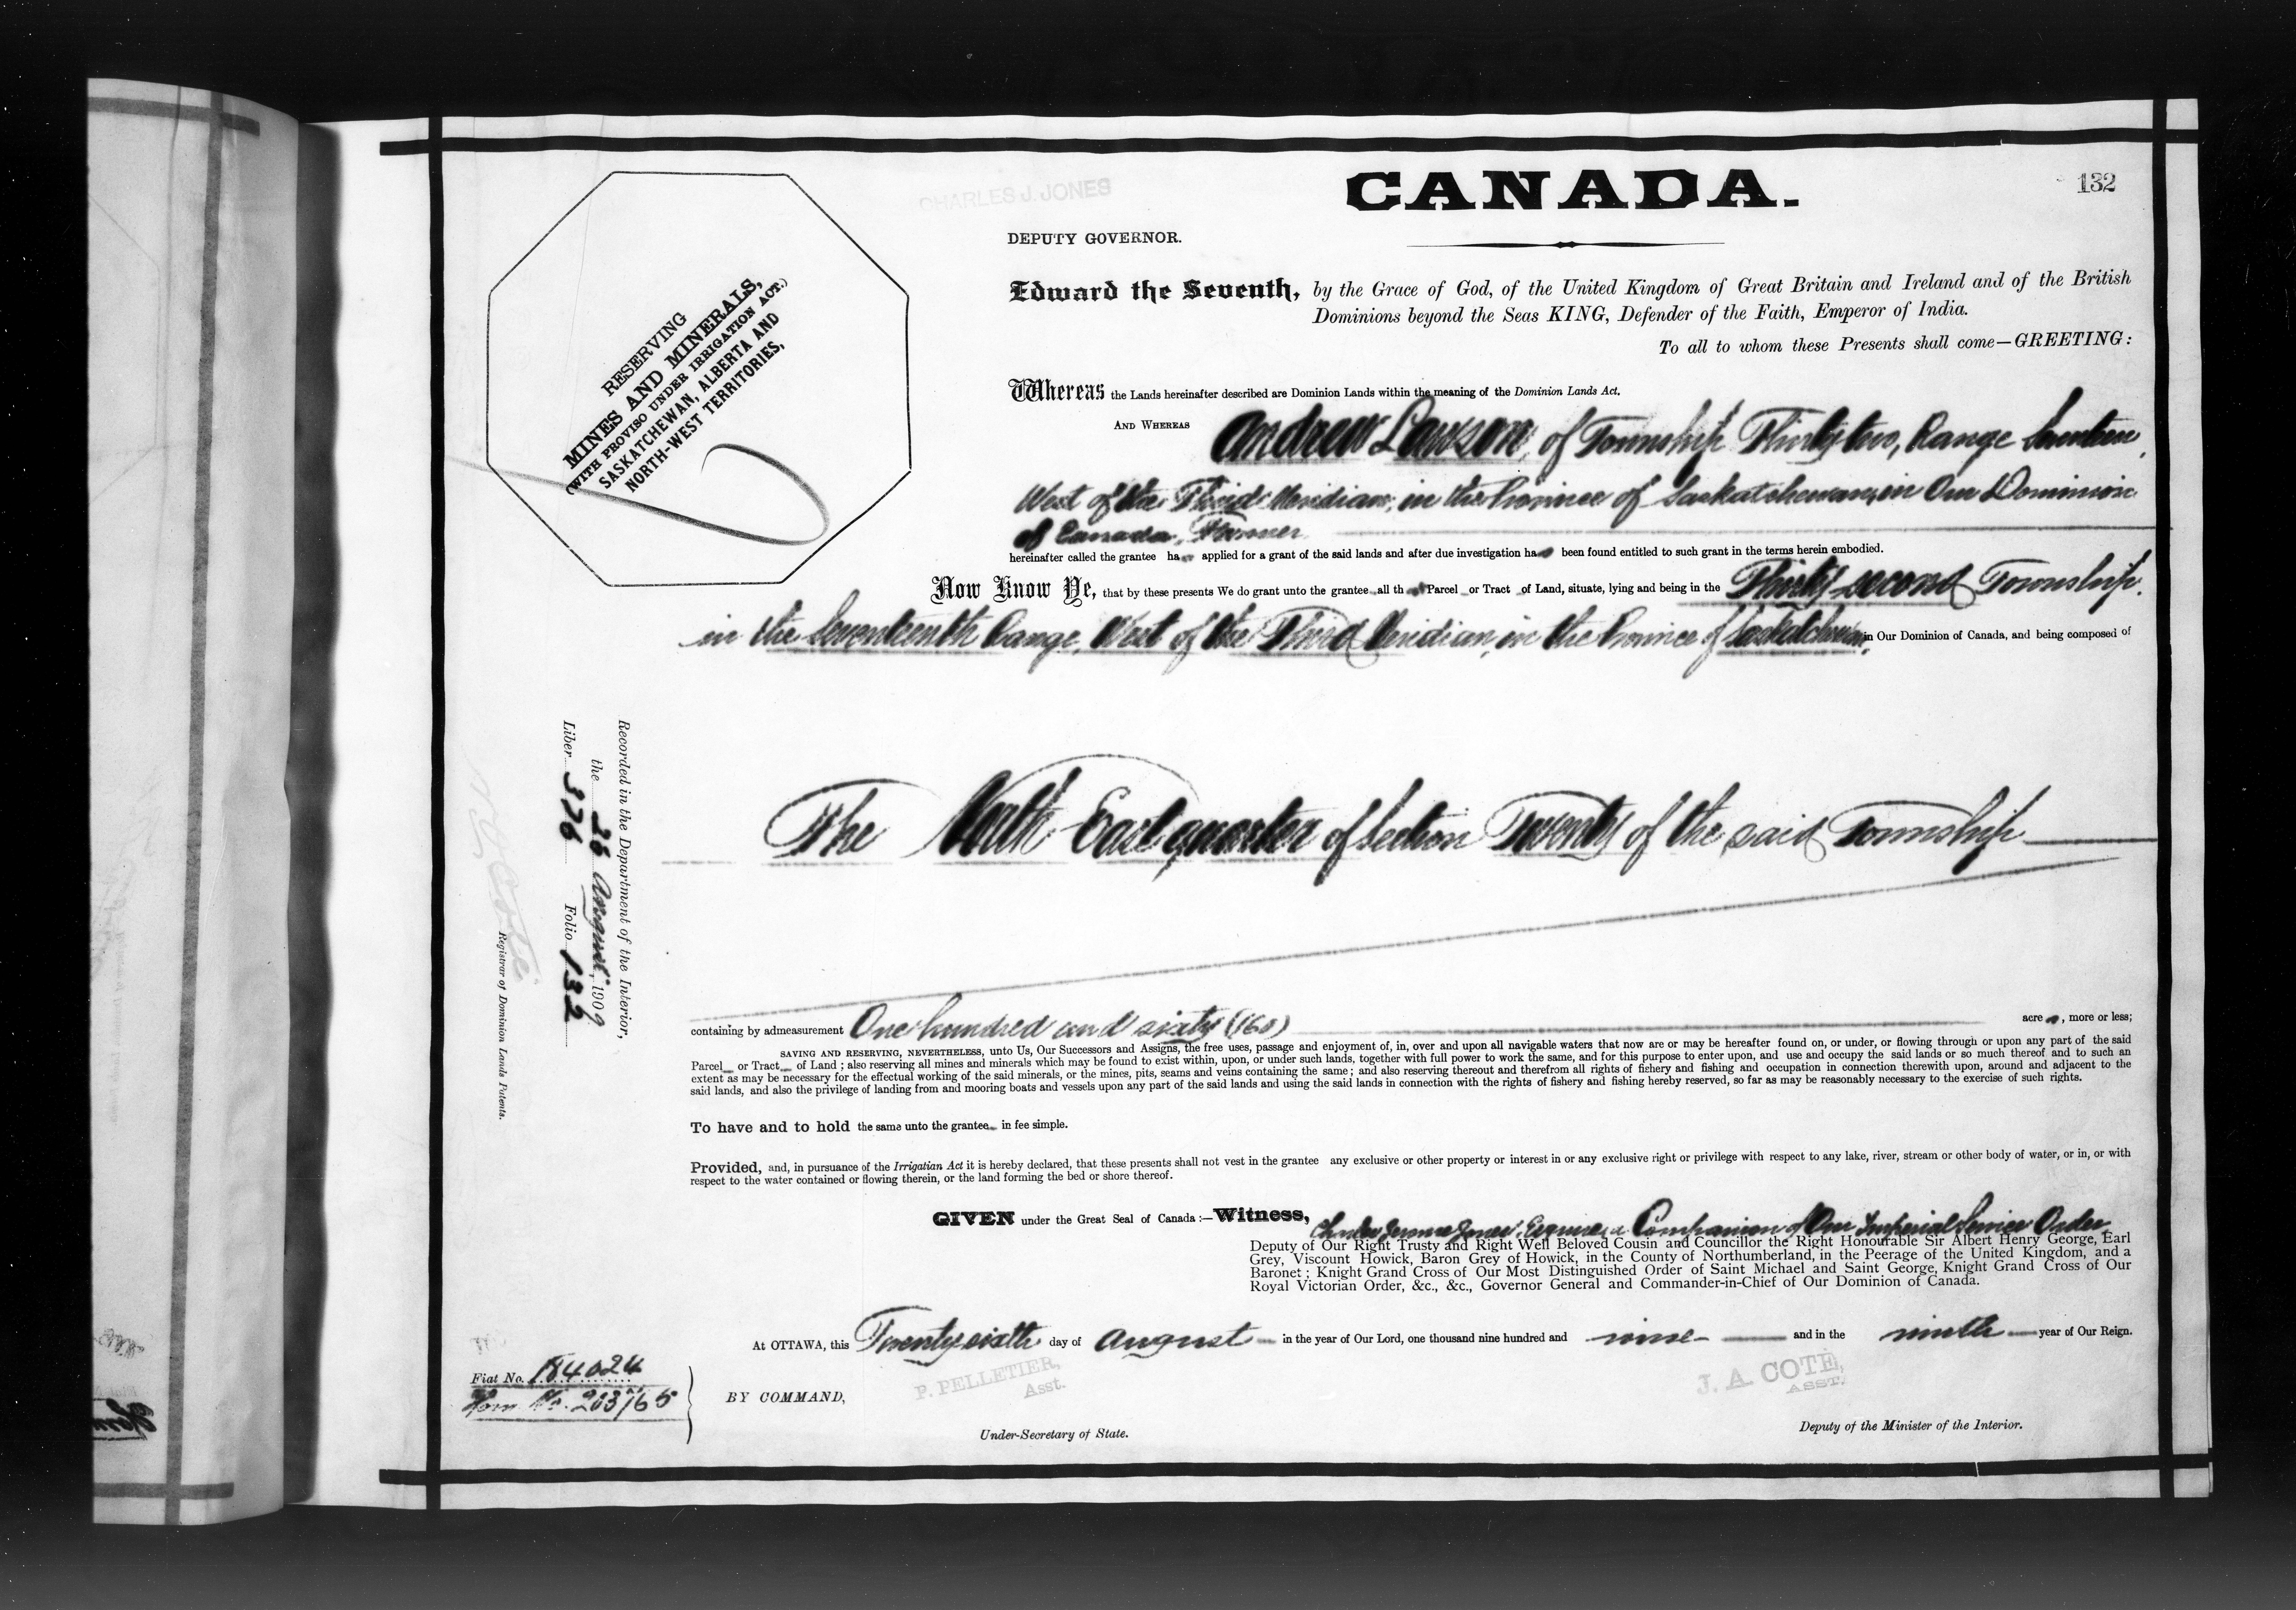 132
CHARLES J. JONES
CANADA.
DEPUTY GOVERNOR.
RESERVING
MINES AND MINERALS,
(WITH PROVISO UNDER IRRIGATION ACT.)
SASKATCHEWAN, ALBERTA AND
NORTH-WEST TERRITORIES,
Edward the Seventh, by the Grace of God, of the United Kingdom of Great Britain and Ireland and of the British
Dominions beyond the Seas KING, Defender of the Faith, Emperor of India.
To all to whom these Presents shall come—GREETING:
Whereas the Lands hereinafter described are Dominion Lands within the meaning of the Dominion Lands Act.
AND WHEREAS Andrew Lawson, of Township Thirty two, Range Seventeen,
West of the Third Meridian, in the Province of Saskatchewan, in Our Dominion
of Canada, Farmer
hereinafter called the grantee has applied for a grant of the said lands and after due investigation has been found entitled to such grant in the terms herein embodied.
Now Know Ye, that by these presents We do grant unto the grantee all that Parcel or Tract of Land, situate, lying and being in the Thirty second Township
in the Seventeenth Range, West of the Third Meridian, in the Province of Saskatchewan, in Our Dominion of Canada, and being composed of
The North East quarter of Section Twenty of the said Township
containing by admeasurement One hundred and sixty (160) acres, more or less;
SAVING AND RESERVING, NEVERTHELESS, unto Us, Our Successors and Assigns, the free uses, passage and enjoyment of, in, over and upon all navigable waters that now are or may be hereafter found on, or under, or flowing through or upon any part of the said
Parcel or Tract of Land; also reserving all mines and minerals which may be found to exist within, upon, or under such lands, together with full power to work the same, and for this purpose to enter upon, and use and occupy the said lands or so much thereof and to such an
extent as may be necessary for the effectual working of the said minerals, or the mines, pits, seams and veins containing the same; and also reserving thereout and therefrom all rights of fishery and fishing and occupation in connection therewith upon, around and adjacent to the
said lands, and also the privilege of landing from and mooring boats and vessels upon any part of the said lands and using the said lands in connection with the rights of fishery and fishing hereby reserved, so far as may be reasonably necessary to the exercise of such rights.
To have and to hold the same unto the grantee in fee simple.
Provided, and, in pursuance of the Irrigatian Act it is hereby declared, that these presents shall not vest in the grantee any exclusive or other property or interest in or any exclusive right or privilege with respect to any lake, river, stream or other body of water, or in, or with
respect to the water contained or flowing therein, or the land forming the bed or shore thereof.
GIVEN under the Great Seal of Canada:—Witness, Charles Jerome Jones, Esquire, a Companion of Our Imperial Service Order
Deputy of Our Right Trusty and Right Well Beloved Cousin and Councillor the Right Honourable Sir Albert Henry George, Earl
Grey, Viscount Howick, Baron Grey of Howick, in the County of Northumberland, in the Peerage of the United Kingdom, and a
Baronet; Knight Grand Cross of Our Most Distinguished Order of Saint Michael and Saint George, Knight Grand Cross of Our
Royal Victorian Order, &c., &c., Governor General and Commander-in-Chief of Our Dominion of Canada.
At OTTAWA, this Twenty sixth day of August in the year of Our Lord, one thousand nine hundred and nine and in the ninth year of Our Reign.
BY COMMAND,
P. PELLETIER,
Asst.
Under-Secretary of State.
J. A. COTE,
ASST.
Deputy of the Minister of the Interior.
Fiat No. 184024
Hom. No. 203165
Recorded in the Department of the Interior,
the 26 August, 1909
Liber 376 Folio 132
Registrar of Dominion Lands Patents.